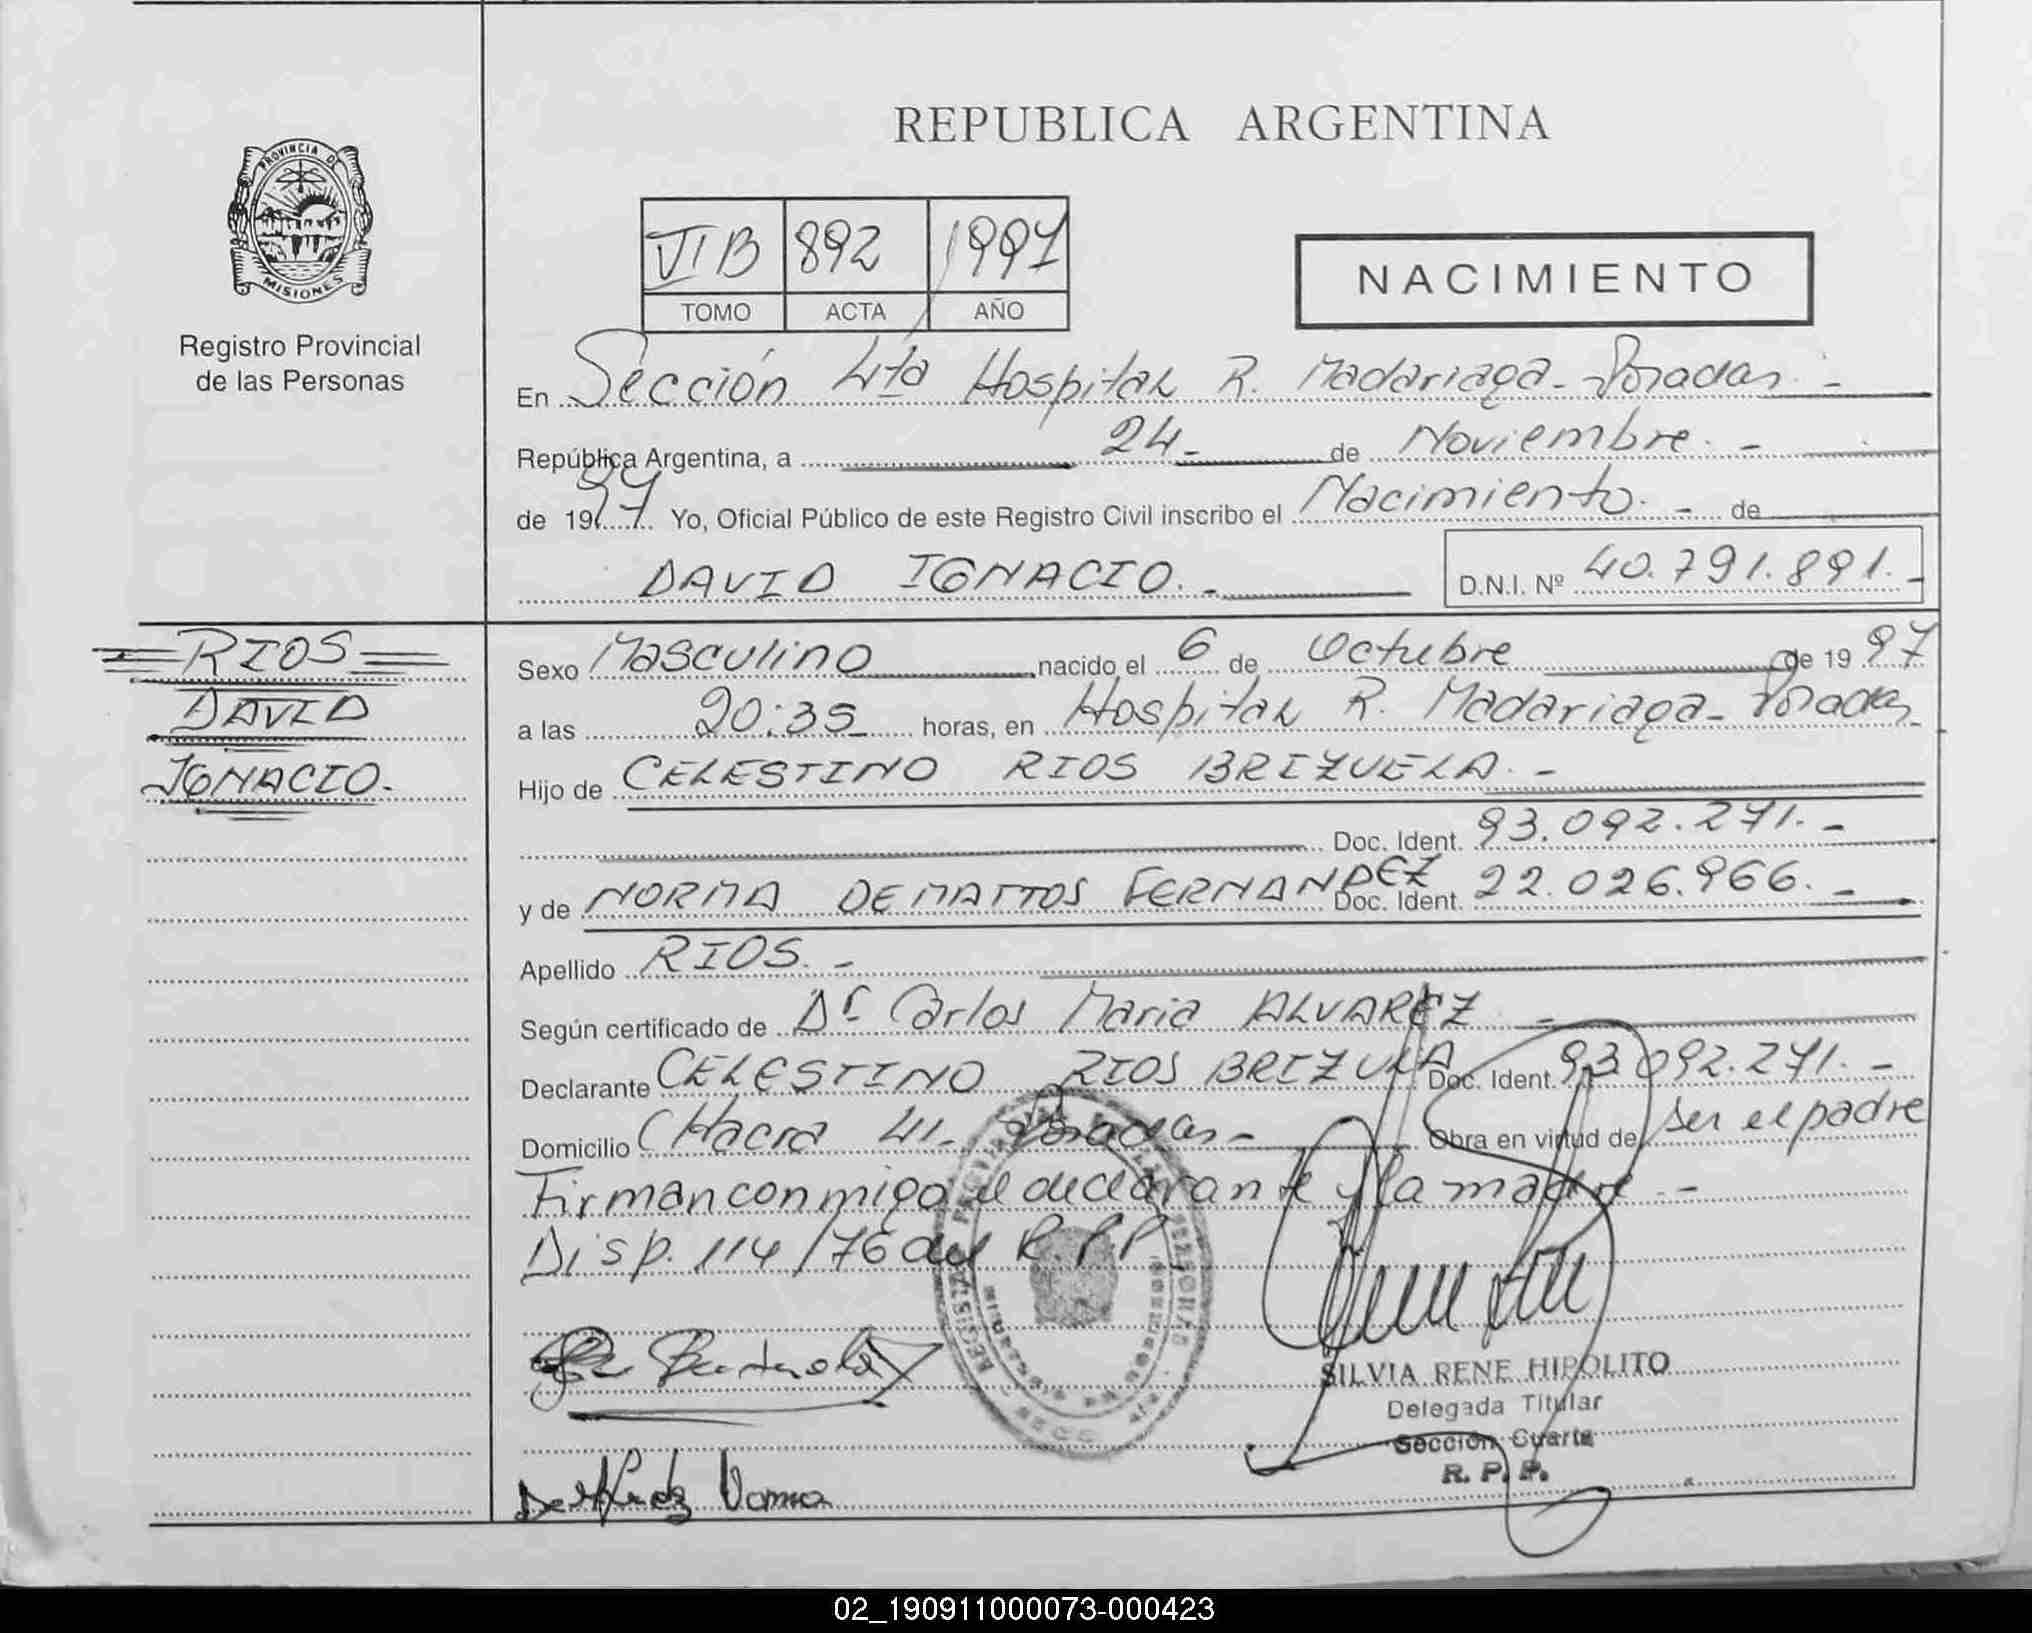 REPUBLICA ARGENTINA
PROVINCIA DE
MISIONES
Registro Provincial
de las Personas
VI B 892 1997
TOMO ACTA AÑO
NACIMIENTO
En Sección 4ta Hospital R. Madariaga - Posadas. -
República Argentina, a 24 - de Noviembre. -
de 1997 Yo, Oficial Público de este Registro Civil inscribo el Nacimiento. - de
DAVID IGNACIO. - D.N.I. Nº 40.791.891. -
RIOS
DAVID
IGNACIO.
Sexo Masculino nacido el 6 de Octubre de 1997
a las 20:35 horas, en Hospital R. Madariaga - Posadas
Hijo de CELESTINO RIOS BRIZUELA. -
Doc. Ident. 93.092.271. -
y de NORMA DEMATTOS FERNANDEZ Doc. Ident. 22.026.966. -
Apellido RIOS. -
Según certificado de Dr Carlos Maria ALVAREZ -
Declarante CELESTINO RIOS BRIZUELA Doc. Ident. 93.092.271. -
Domicilio Chacra 41 - Posadas - Obra en virtud de ser el padre
Firman conmigo el declarante y la madre. -
Disp. 114/76 del R.P.P.
SILVIA RENE HIPOLITO
Delegada Titular
Sección Cuarta
R. P. P.
02_190911000073-000423